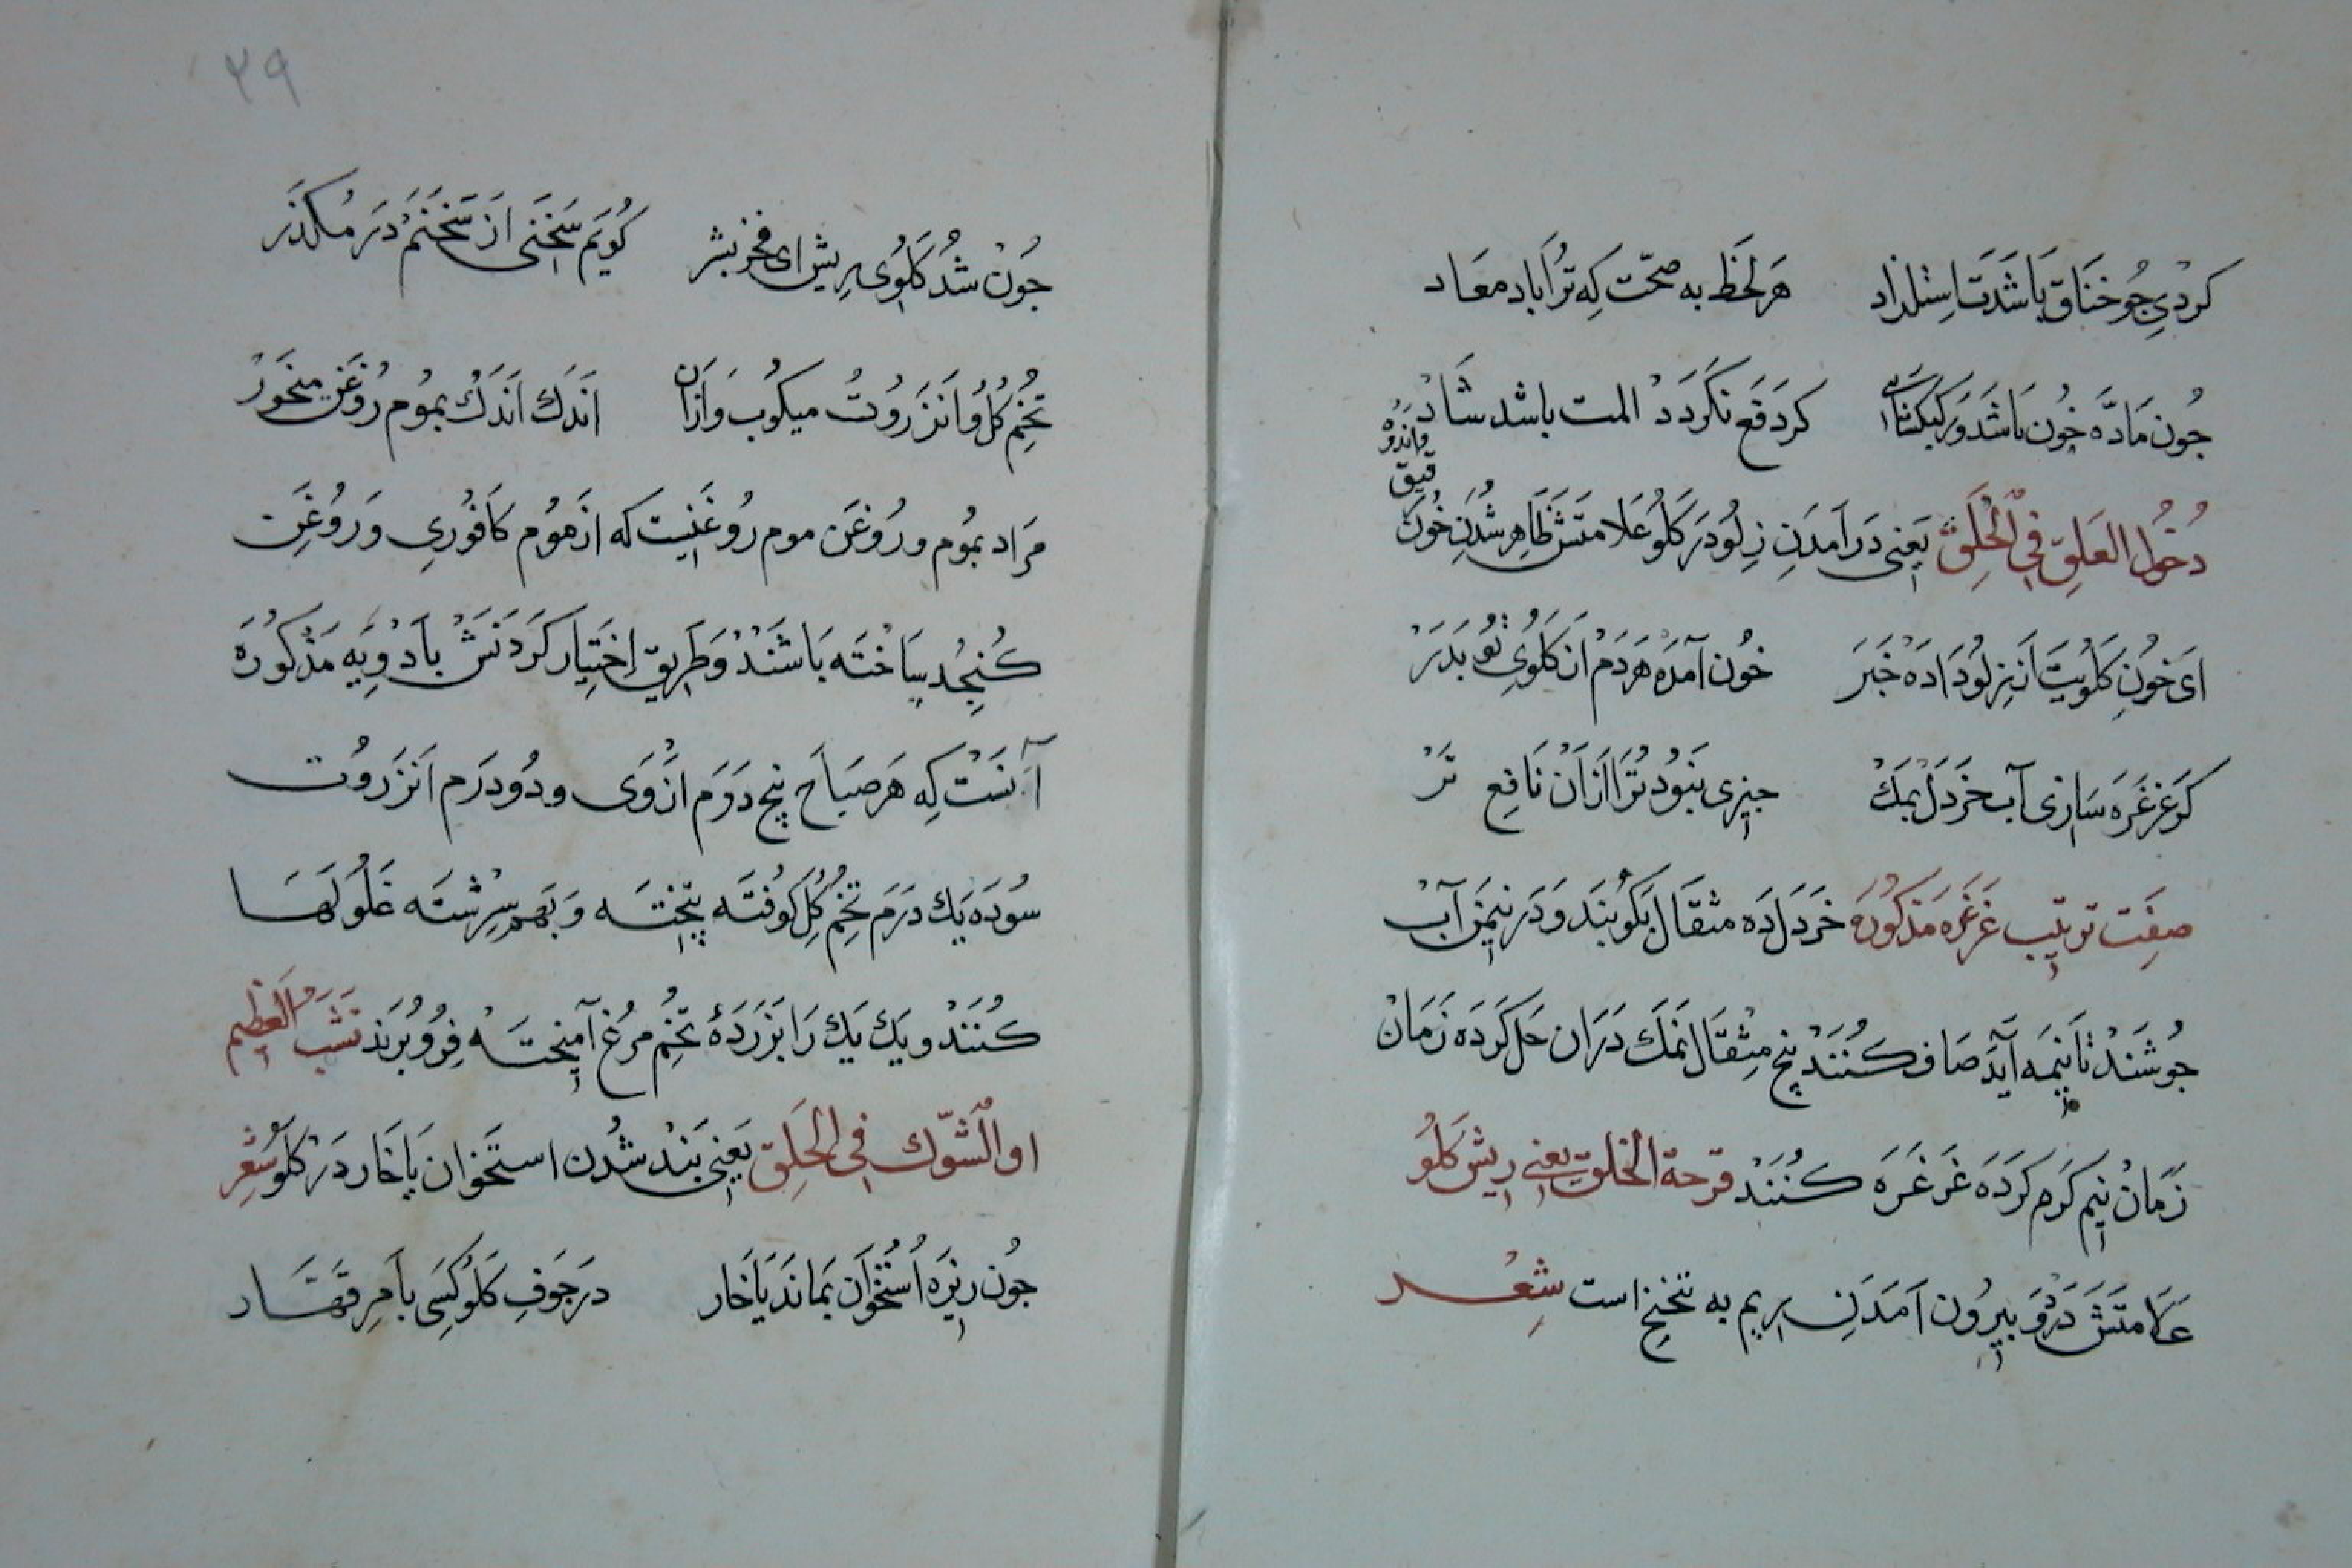 کردی چو خناق باشدت استلذاد هر لحظ به صحّت که ترا باد معاد
جون مادّه خون باشد و رک نکشائی کر دفع نکردد المت باشد شاد
دخول العلق فی الحلق یعنی درآمدن زلو در کلو علامتش ظاهر شدن خون رقیق و اندوه
ای خون کلویت از زلو داده خبر خون آمده هر دم از کلوی تو بدر
کر غرغره سازی آب خردل بمک جیزی نبود ترا از ان نافع تر
صفت ترتیب غرغره مذکوره خردل ده مثقال بکوبند و در نیمن آب
جوشند تا نیمه آید صاف کنند پنج مثقال نمک در ان حل کرده زمان
زمان نیم کرم کرده غرغره کنند قرحة الحلق یعنی ریش کلو
علامتش درد و بیرون آمدن ریم به تنخنخ است شعر
۲۹
جون شد کلوی ریش ای فخر بشر کویم سخنی از سخنم در مکذر
تخم کل و انزروت میکوب و ازان اندک اندک بموم روغن میخور
مراد بموم و روغن موم روغنیست که از موم کافوری و روغن
کنجد ساخته باشند و طریق اختیار کردنش بادویه مذکوره
آنست که هر صباح پنج درم از وی و دو درم انزروت
سوده یک درم تخم کل کوفته پیخته و بهم سرشته غلولها
کنند و یک یک را بزردهٔ تخم مرغ آمیخته فرو برند نشب العظم
او الشوک فی الحلق یعنی بند شدن استخوان یا خار در کلو شعر
جون ریزه استخوان بماند یا خار در جوف کلو کسی بامر قهار